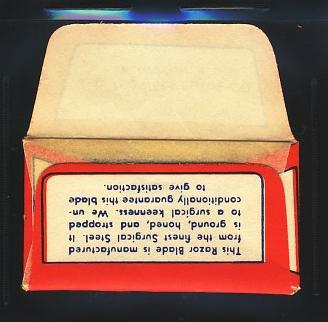 This Razor Blade is manufactured
from the finest Surgical Steel. It
is ground, honed, and strapped
to a surgical keenness. We un-
conditionally guarantee this blade
to give satisfaction.